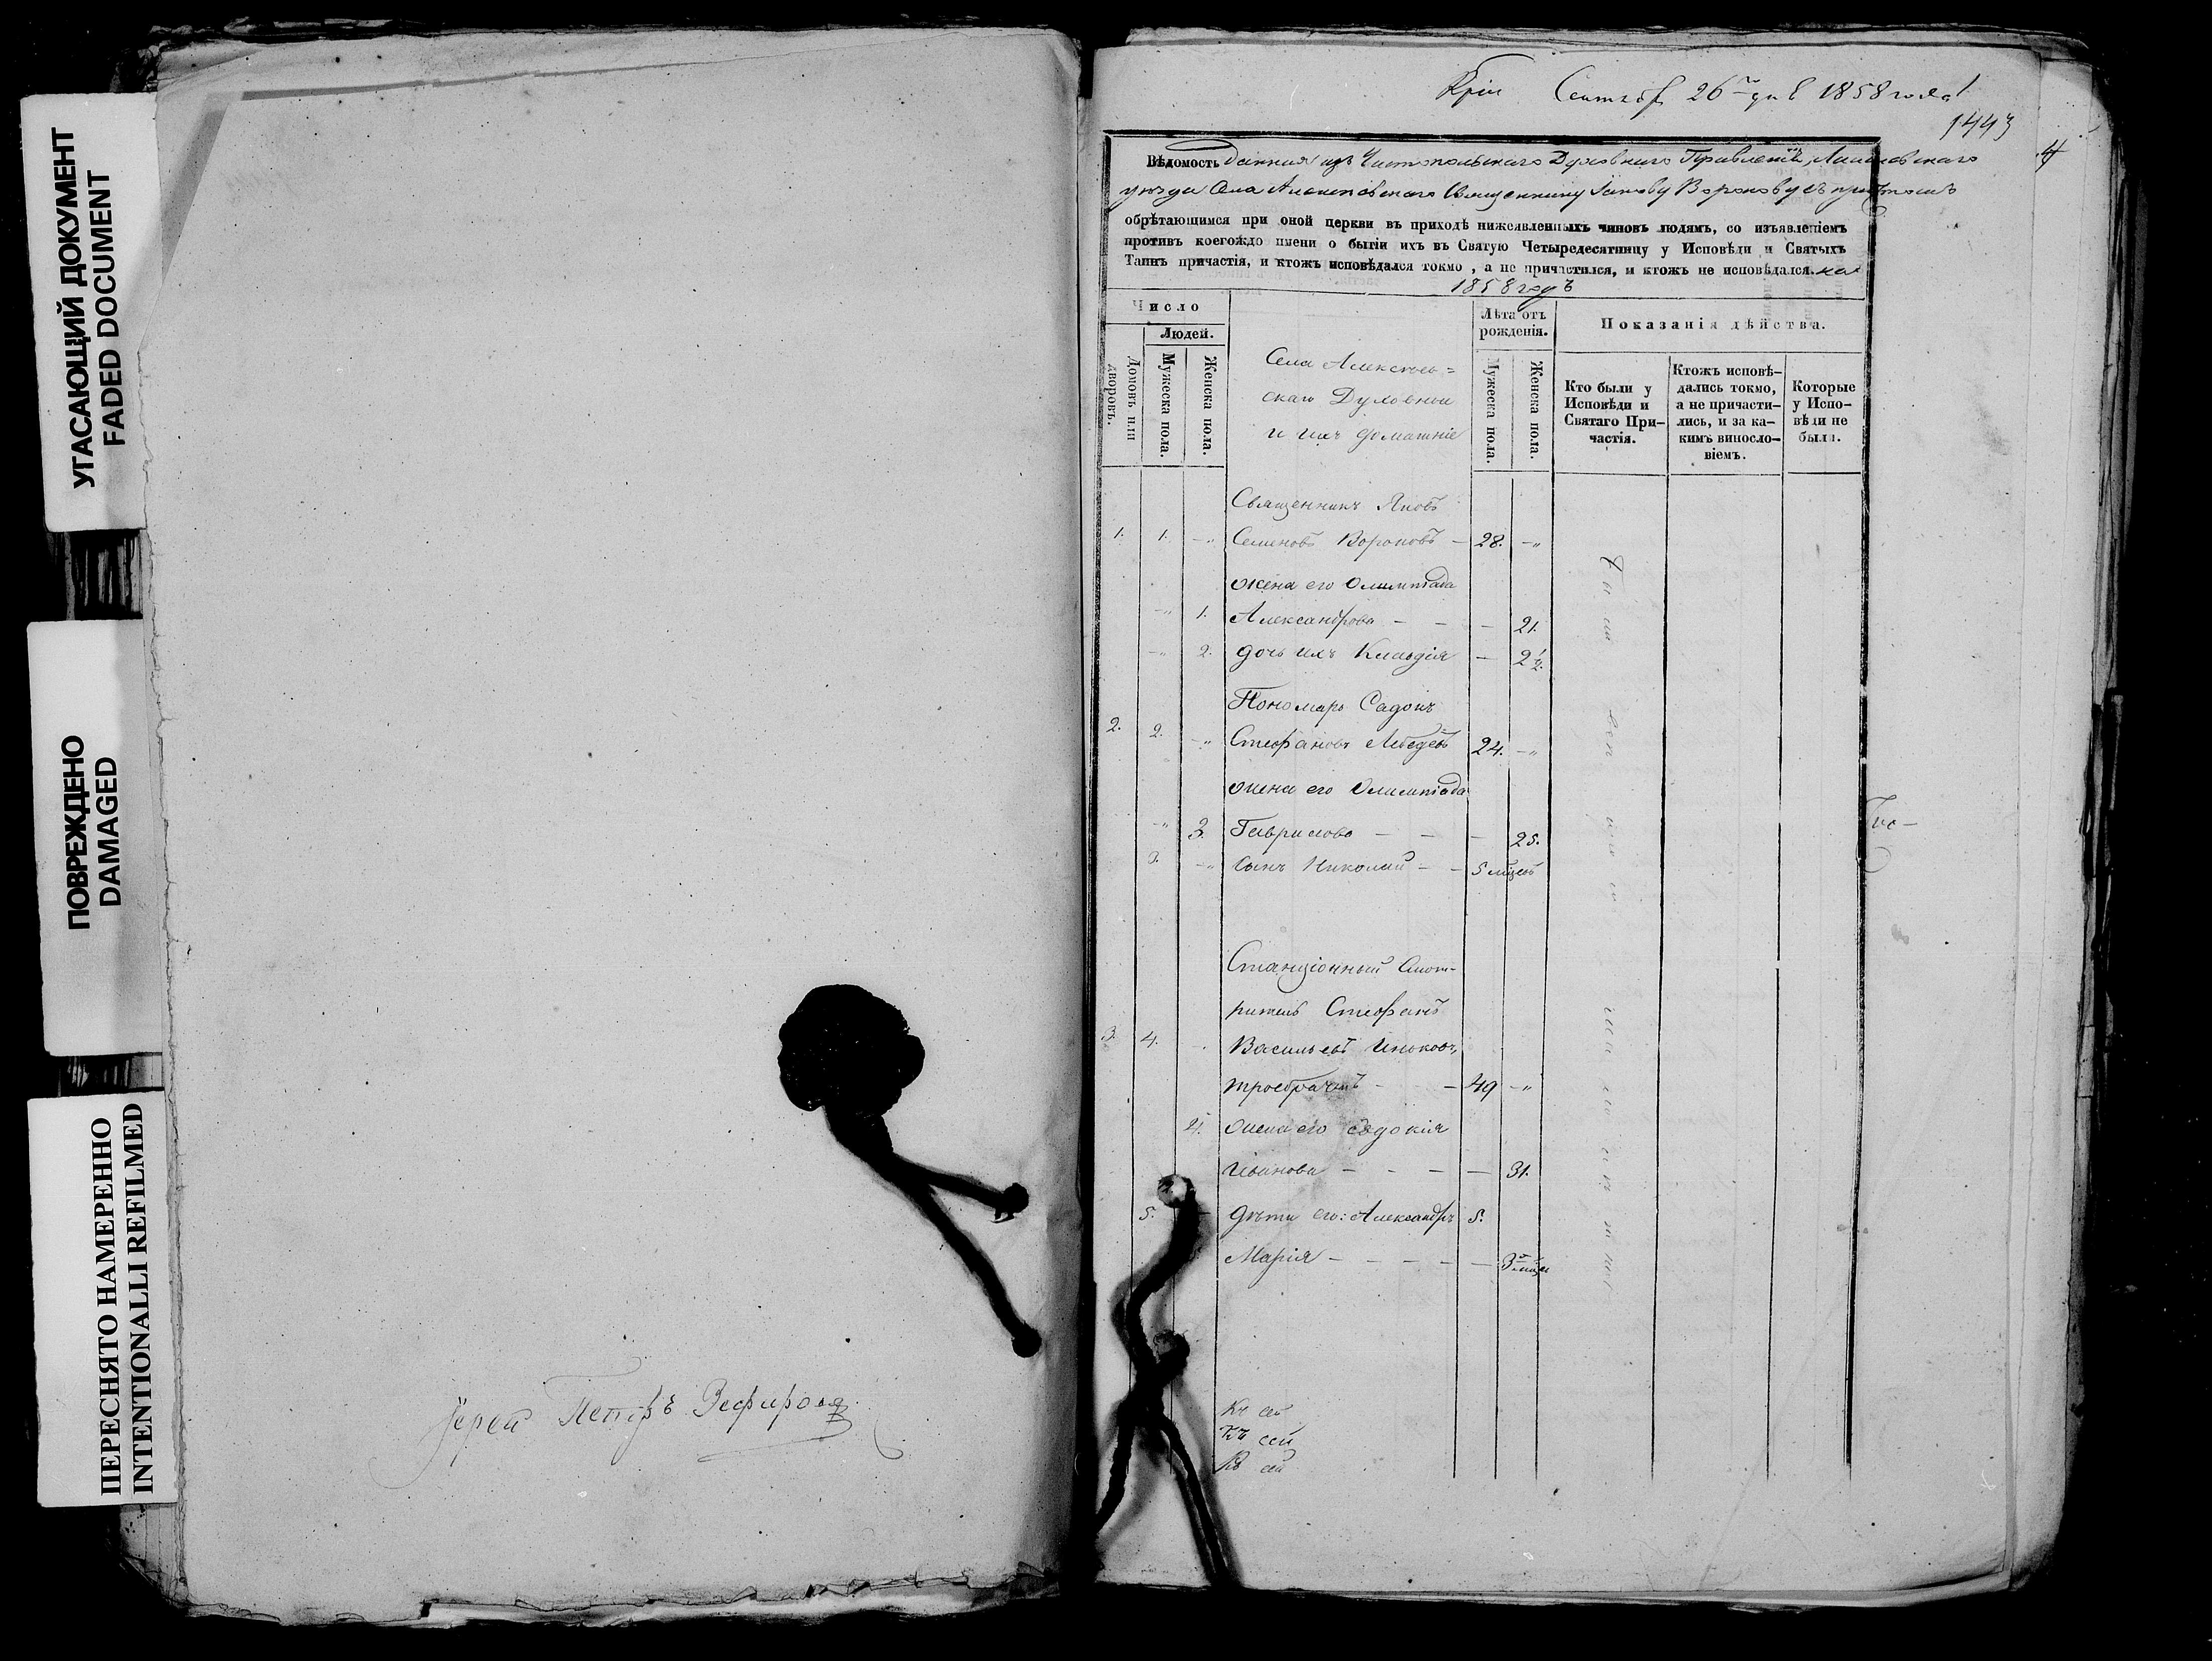 УГАСАЮЩИЙ ДОКУМЕНТ
FADED DOCUMENT
ПОВРЕЖДЕНО
DAMAGED
ПЕРЕСНЯТО НАМЕРЕННО
INTENTIONALLI REFILMED
Іерей Петръ Зефировъ
Сентябр 26 дня 1858 года
1443
Вѣдомость данная изъ Чистопольскаго Духовнаго Правленія,
уѣзда Села Алексѣевскаго Священнику Іакову Воронову съ причтомъ
обрѣтающимся при оной церкви въ приходѣ нижеявленныхъ чиновъ людямъ, со изъявленіемъ
противъ коегождо имени о бытіи ихъ въ Святую Четыредесятницу у Исповѣди и Святыхъ
Таинъ причастія, и ктожъ исповѣдался токмо, а не причастился, и ктожъ не исповѣдался. на
1858 годъ
Число
Домовъ или дворовъ.
Людей.
Мужеска пола.
Женска пола.
Села Алексѣев=
скаго Духовные
и ихъ домашніе
Лѣта отъ рожденія.
Мужеска пола.
Женска пола.
Показанія дѣйства.
Кто были у Исповѣди и Святаго При-частія.
Ктожъ исповѣ-дались токмо, а не причасти-лись, и за ка-кимъ винословіемъ.
Которые у Испо-вѣди не были.
Священникъ Яковъ
1. 1. -„ Семеновъ Вороновъ - 28. -„
жена его Олимпіада
-„ 1. Александрова - - - 21.
-„ 2. дочь ихъ Клавдія - 2 1/2.
Пономарь Садокъ
2. 2. -„ Стефановъ Лебедевъ 24. -„
жена его Олимпіада
-„ 3. Гаврилова - - - 25.
3. -„ сынъ Николай - - 5 мѣцевъ
Станціонный Смот-
ритель Стефанъ
3. 4. Васильевъ
троебрачный - - 49 -„
4. жена его Евдокія
Иванова - - - - 31.
5. - дѣти его: Александръ 5.
Марія - - - - - 3
Къ сей
Къ сей
Къ сей